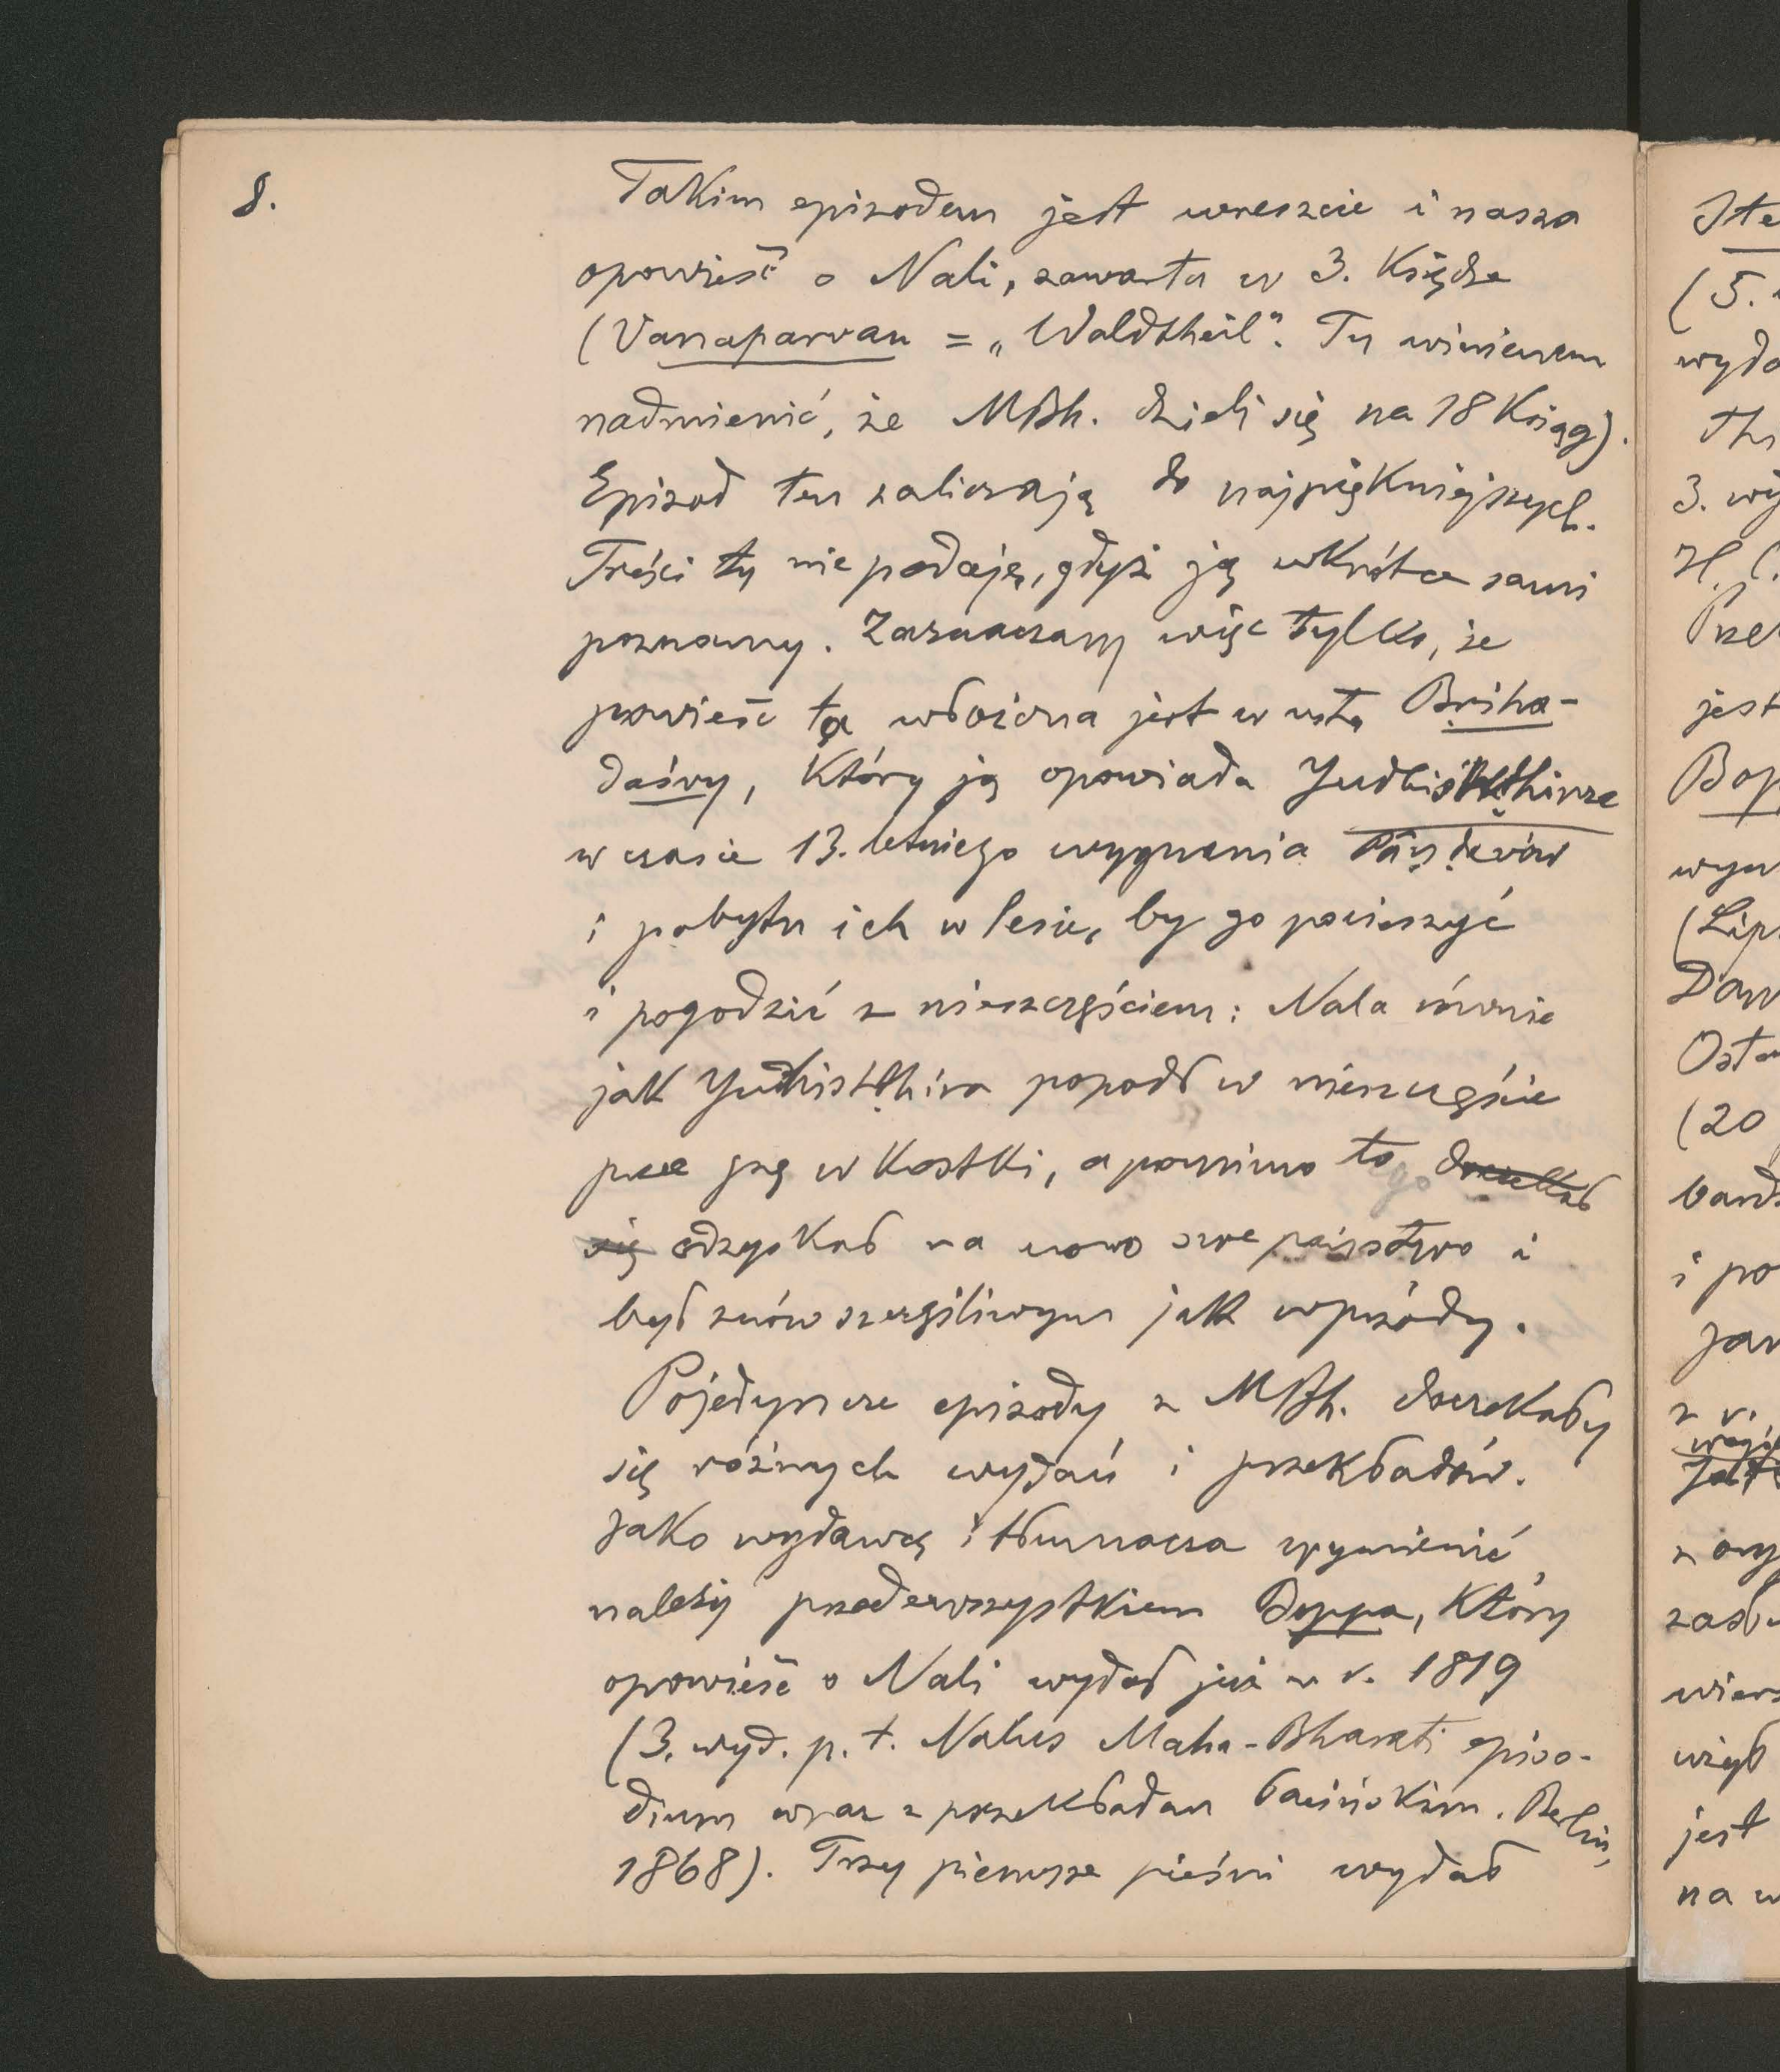 8.
Takim epizodem jest wreszcie i nasza
opowieść o Nali, zawarta w 3. Księdze
(Vanaparvan = „Waldtheil". Tu winienem
nadmienić, że MBh. dzieli się na 18 Ksiąg).
Epizod ten zaliczają do najpiękniejszych.
Treści tu nie podaję, gdyż ją wkrótce sami
poznamy. Zaznaczam więc tylko, że
powieść ta włożona jest w usta Briha-
daśvy, który ją opowiada
w czasie 13. letniego wygnania
i pobytu ich w lesie, by go pocieszyć
i pogodzić z nieszczęściem: Nala równie
jak popadł w nieszczęście
prze grę w Kostki, a pomimo tego
się odzyskał na nowo swe państwo i
był znów szczęśliwym jak wprzódy.
Pojedyncze epizody z MBh. doczekały
się różnych wydań i przekładów.
Jako wydawcę i tłumacza wymienić
należy przedewszystkiem Boppa, Który
opowieść o Nali wydał już w r. 1819
(3. wyd. p. t. Nalus Maha-Bharati episo-
dium wraz z przekładem łacińskim. Berlin,
1868). Trzy pierwsze pieśni wydał
(5.
wydo
3. wy
H. C.
jest
Bop
wyn
(Lip
Ost
(20
bard
i po
wier
jest
na w